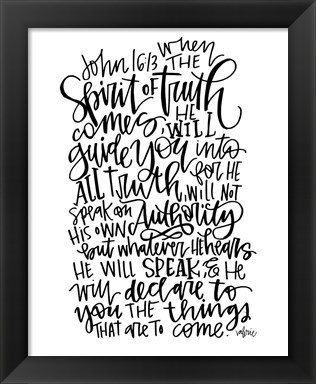 John 16:13 when
THE
Spirit of truth
comes, HE
WILL
guide you into
ALL truth, for HE
will NOT
speak on
HIS OWN Authority
but whatever HE hears
HE WILL SPEAK, & HE
will declare to
you THE things
THAT are TO come.
valerie